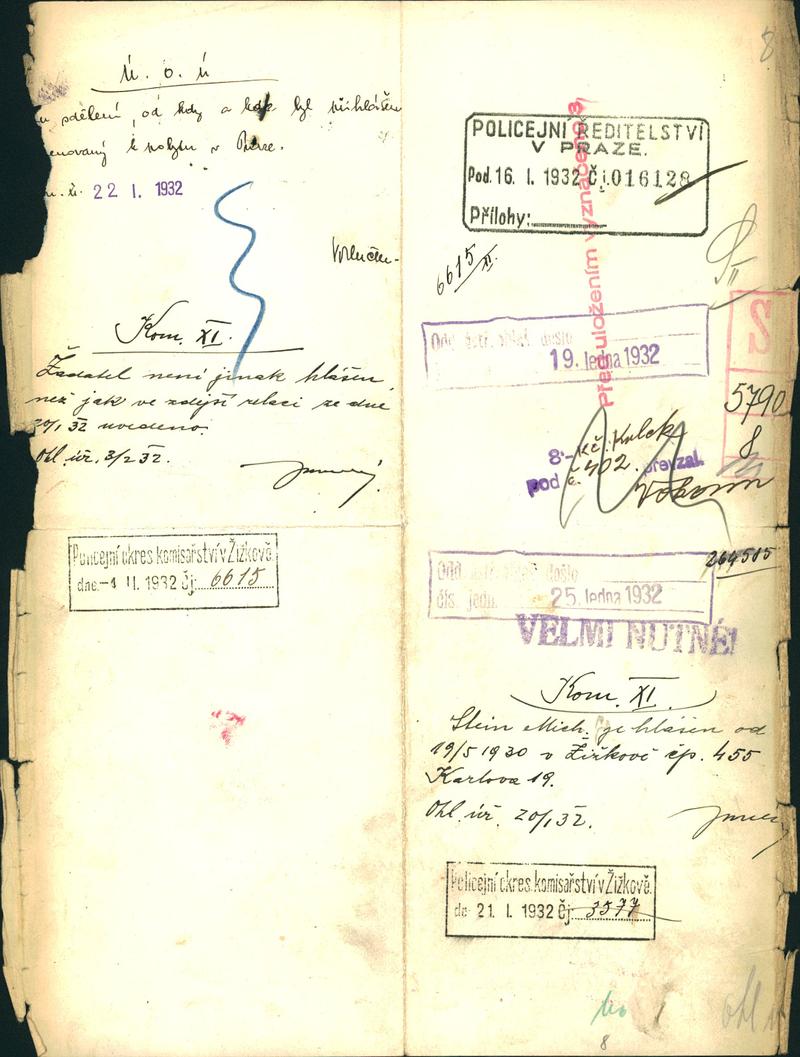 Ú. o. ú
sdělení, od kdy a kde byl přihlášen
k pobytu v Praze.
22 I. 1932
Kom. XI.
Žadatel není jinak hlášen,
než jak ve zdejší relaci ze dne
20/1 32 uvedeno.
Ohl. úř. 3/2 32.
Policejní okres komisařství v Žižkově
dne -4 II. 1932 Čj. 6615
8
POLICEJNÍ ŘEDITELSTVÍ
V PRAZE.
Pod. 16. I. 1932 Č.j. 016128
Přílohy:
Před uložením vyznačeno
6615/II.
Odd. došlo
19. ledna 1932
S
5790
8
8·- Kč. Kolek
pod č. 402. převzal.
264515
Odd. došlo
čís. jedn. 25. ledna 1932
VELMI NUTNÉ!
Kom. XI.
Stein Mich. je hlášen od
19/5 1930 v Žižkově čp. 455
Karlova 19.
Ohl. úř. 20/1 32.
Policejní okres. komisařství v Žižkově.
dne 21. I. 1932 Čj. 3577
ohl
8